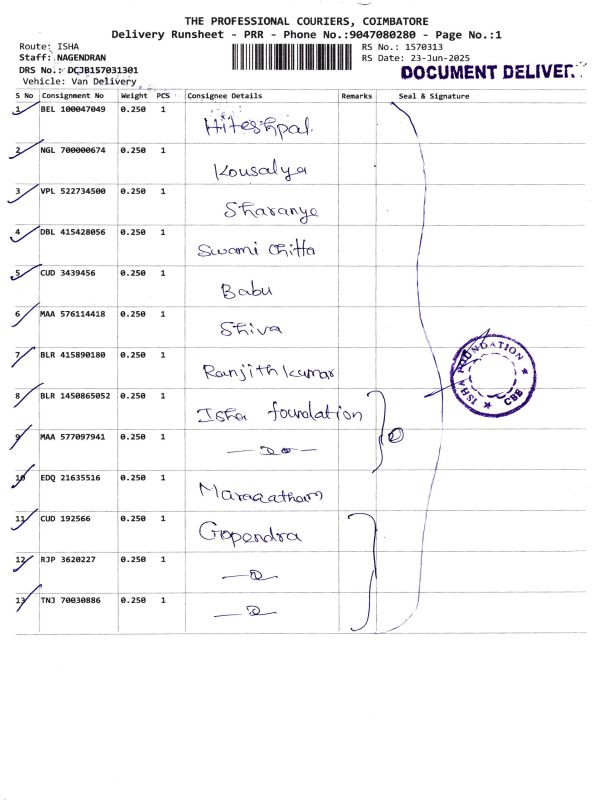 THE PROFESSIONAL COURIERS, COIMBATORE
Delivery Runsheet - PRR - Phone No.:9047080280 - Page No.:1
Route: ISHA
Staff: NAGENDRAN
DRS No.: DCJB157031301
Vehicle: Van Delivery
RS No.: 1570313
RS Date: 23-Jun-2025
DOCUMENT DELIVER
S No Consignment No Weight PCS Consignee Details Remarks Seal & Signature
1 BEL 100047049 0.250 1 Hiteshpal
2 NGL 700000674 0.250 1 Kousalya
3 VPL 522734500 0.250 1 Sharanye
4 DBL 415428056 0.250 1 Swami Chitta
5 CUD 3439456 0.250 1 Babu
6 MAA 576114418 0.250 1 Shiva
7 BLR 415890180 0.250 1 Ranjith kumar
8 BLR 1450865052 0.250 1 Isha foundation
9 MAA 577097941 0.250 1
10 EDQ 21635516 0.250 1 Maragatham
11 CUD 192566 0.250 1 Gopendra
12 RJP 3620227 0.250 1
13 TNJ 70030886 0.250 1
ISHA FOUNDATION
CBE